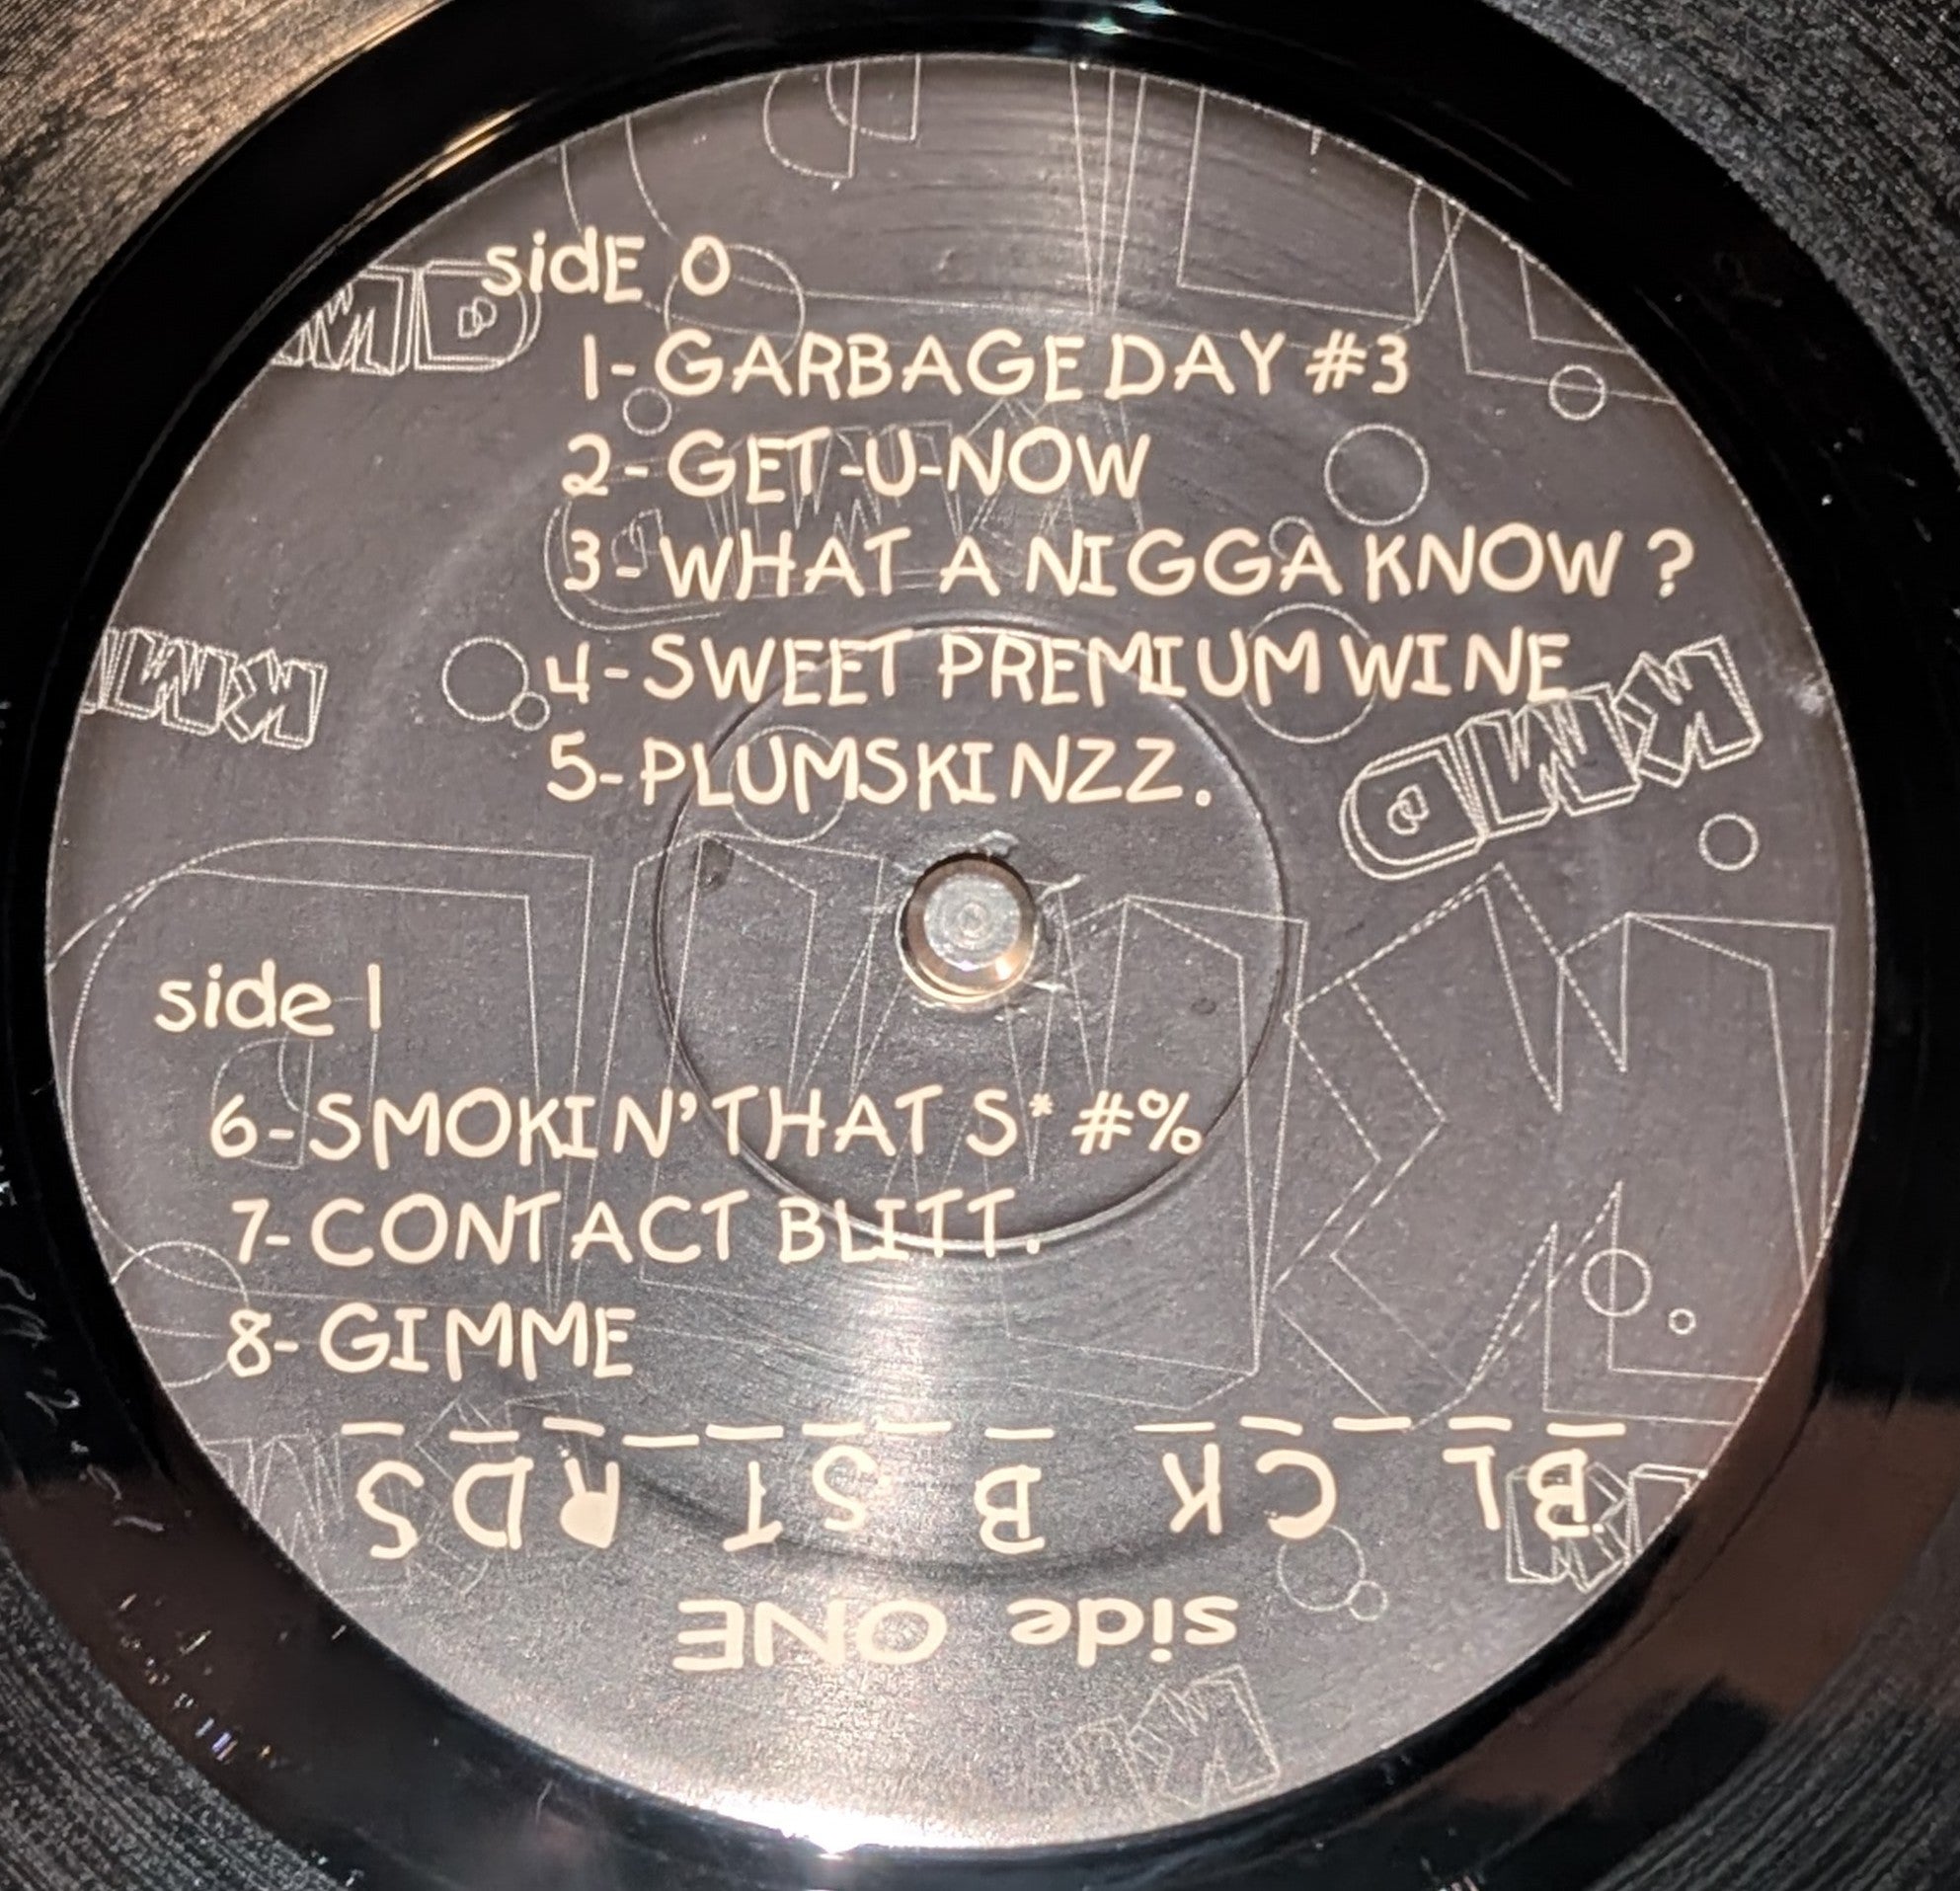 sidE 0
1-GARBAGE DAY #3
2-GET-U-NOW
3-WHAT A NIGGA KNOW?
4-SWEET PREMIUM WINE
5-PLUMSKINZZ.
side 1
6-SMOKIN' THAT S*#%
7-CONTACT BLITT.
8-GIMME
BL_CK B_ST_RDS
side ONE
KMD
KMD
KMD